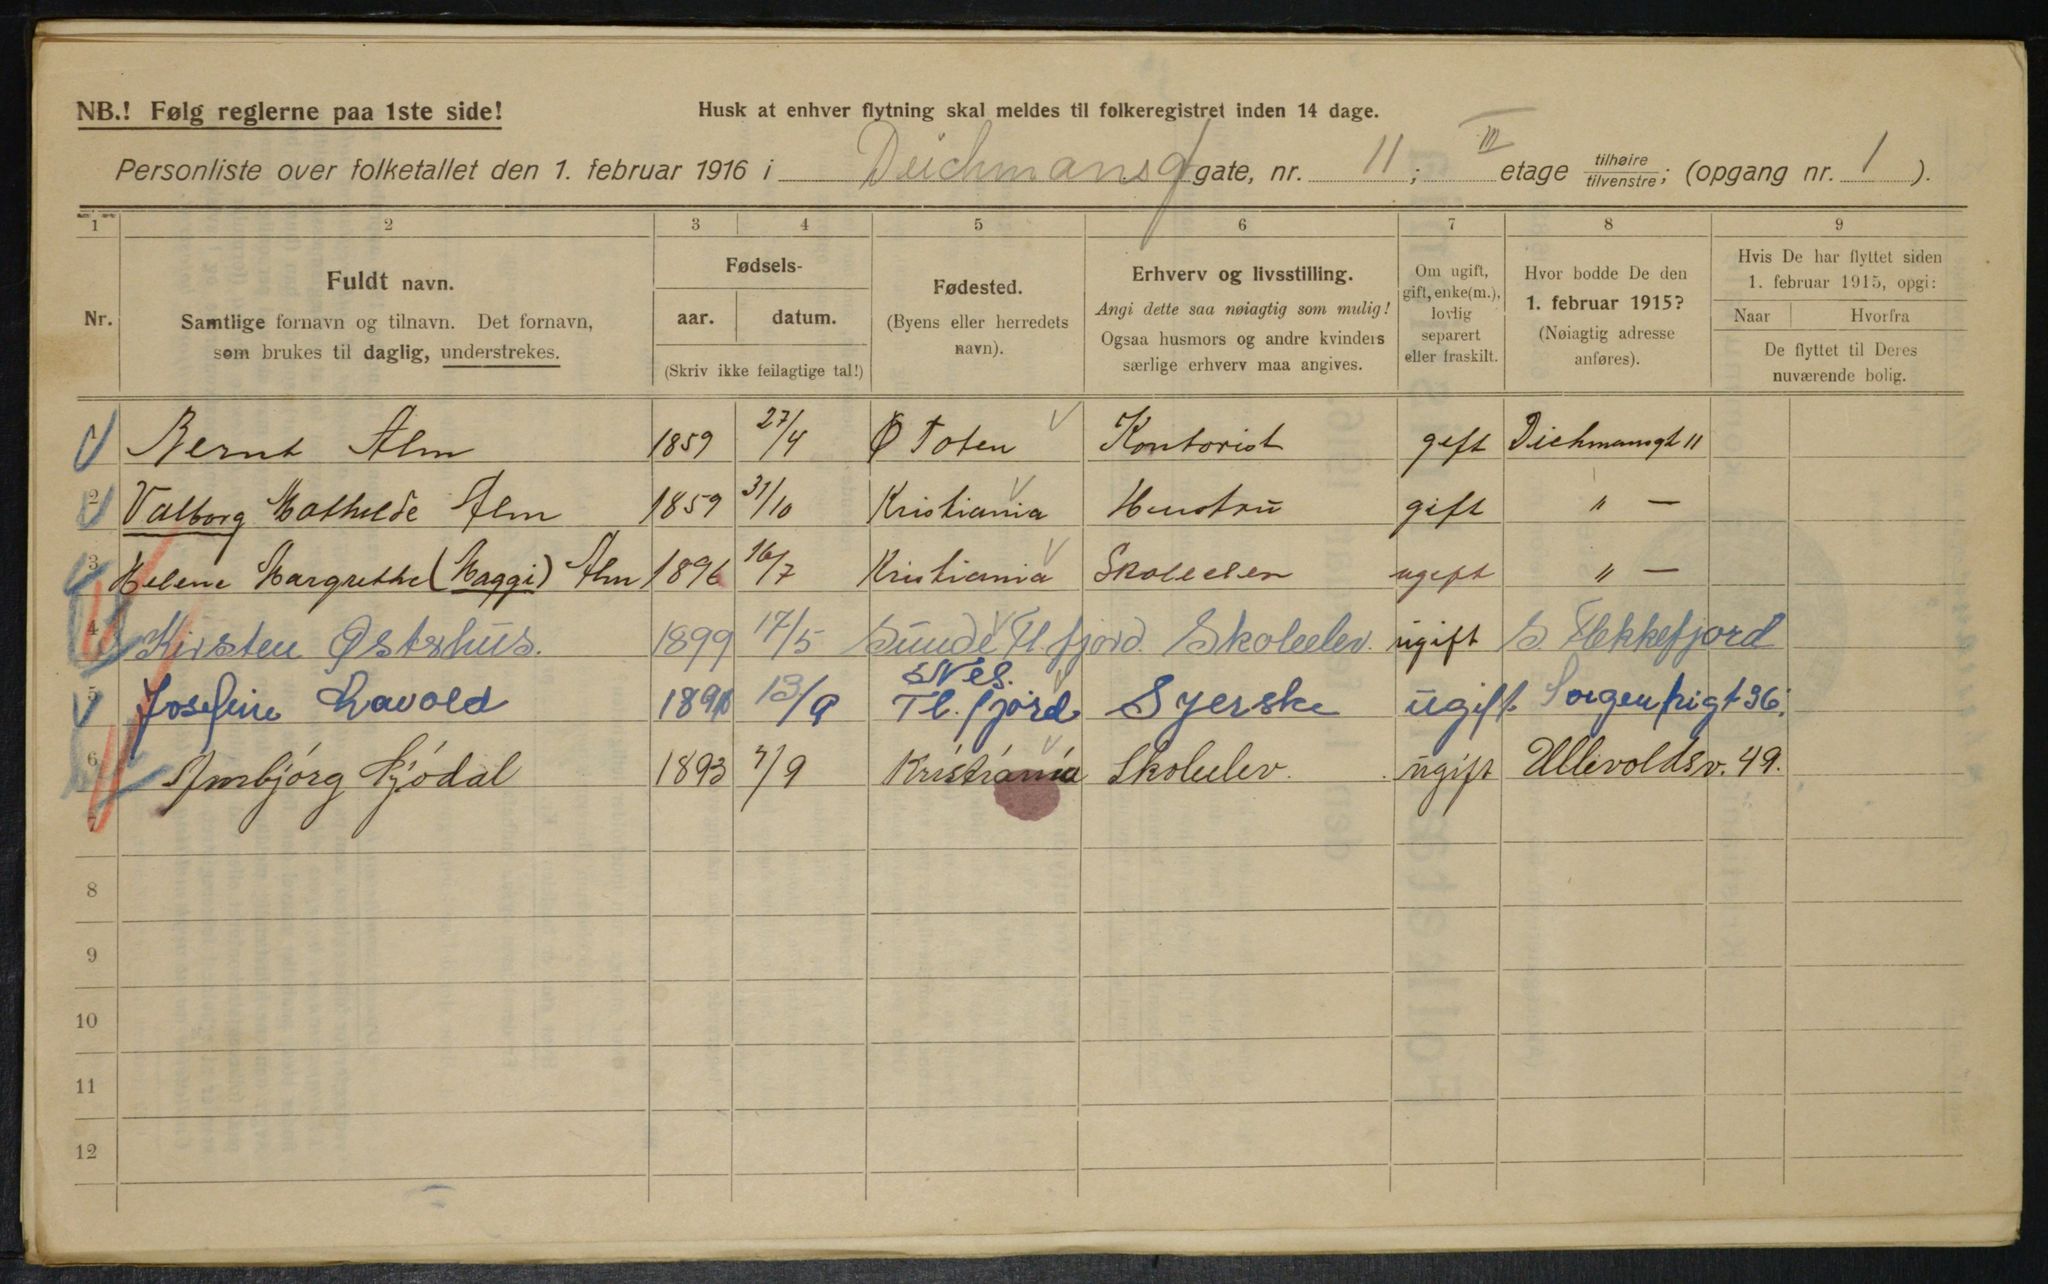 NB.! Følg reglerne paa 1ste side!
Husk at enhver flytning skal meldes til folkeregistret inden 14 dage.
Personliste over folketallet den 1. februar 1916 i Deichmansg gate, nr. 11; III etage tilhøire/tilvenstre; (opgang nr. 1).
1 2 3 4 5 6 7 8 9
Nr.
Fuldt navn.
Samtlige fornavn og tilnavn. Det fornavn,
som brukes til daglig, understrekes.
Fødsels-
aar. datum.
(Skriv ikke feilagtige tal!)
Fødested.
(Byens eller herredets
navn).
Erhverv og livsstilling.
Angi dette saa nøiagtig som mulig!
Ogsaa husmors og andre kvinders
særlige erhverv maa angives.
Om ugift,
gift, enke(m.),
lovlig
separert
eller fraskilt.
Hvor bodde De den
1. februar 1915?
(Nøiagtig adresse
anføres).
Hvis De har flyttet siden
1. februar 1915, opgi:
Naar Hvorfra
De flyttet til Deres
nuværende bolig.
Bernt Alm 1859 27/4 Ø Toten Kontorist gift Dichmansgt 11
2 Valborg Mathilde Alm 1859 31/10 Kristiania Hustru gift " —
3 Helene Margrethe (Maggi) Alm 1896 16/7 Kristiania Skoleelev ugift " —
4 Kirsten Østshus. 1899 17/5 Sunde Fl.fjord. Skoleelev. ugift S. Flekkefjord
5 Josefine Lavold 13/9 Nes. Fl. fjord Syerske ugift Sorgenfrigt 36.
6 Ambjörg Kjödal 1893 9 Kristiania Skoleelev. ugift Ullevoldsv. 49.
7
8
9
10
11
12